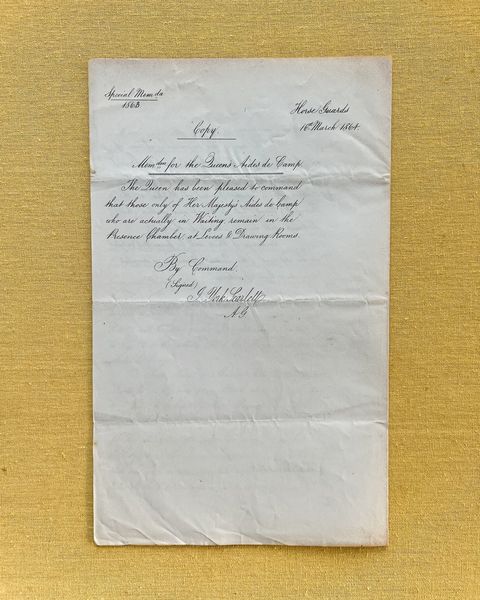 Special Memda
1863
Horse Guards
16th March 1864.
Copy.
Memdum for the Queens Aides de Camp.
The Queen has been pleased to command
that those only of Her Majestys Aides de Camp
who are actually in Waiting remain in the
Presence Chamber, at Levees & Drawing Rooms.
By Command.
(Signed)
J. York Scarlett,
A.G.